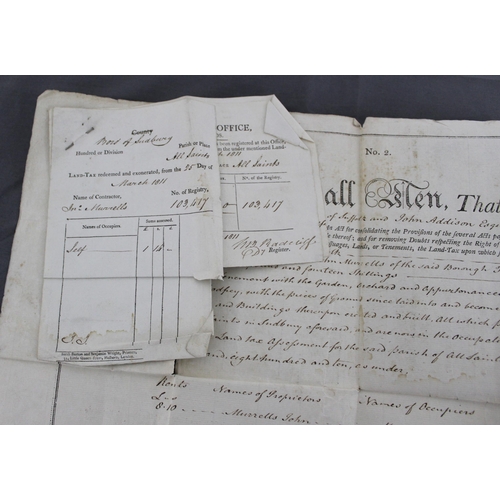 County
Boro' of Sudbury
Hundred or Division
Parish or Place
All Saints
LAND-TAX redeemed and exonerated, from the 25 Day of
March 1811
Name of Contractor,
No. of Registry,
Jno. Murrells
103,417
Names of Occupiers.
Sums assessed.
Self
1 15 –
OFFICE,
been registered at this Office,
the under mentioned Land-
March 1811
All Saints
No. of the Register.
103,417
1811
Register.
No. 2.
all Men, That
of Suffolk and John Addison Esq
An Act for consolidating the Provisions of the several Acts
thereof; and for removing Doubts respecting the Right of
Messuages, Lands, or Tenements, the Land-Tax upon which
John Murrells of the said Borough
and fourteen shillings
with the Garden, orchard and appurtenances
with the pieces of Ground since laid into and become
and Buildings thereupon erected and built All which
in Sudbury aforesaid, and are now in the Occupation
Land tax Assessment for the said parish of All Saints
eight hundred and ten, as under,
Rents Names of Proprietors Names of Occupiers
8.10 Murrells John